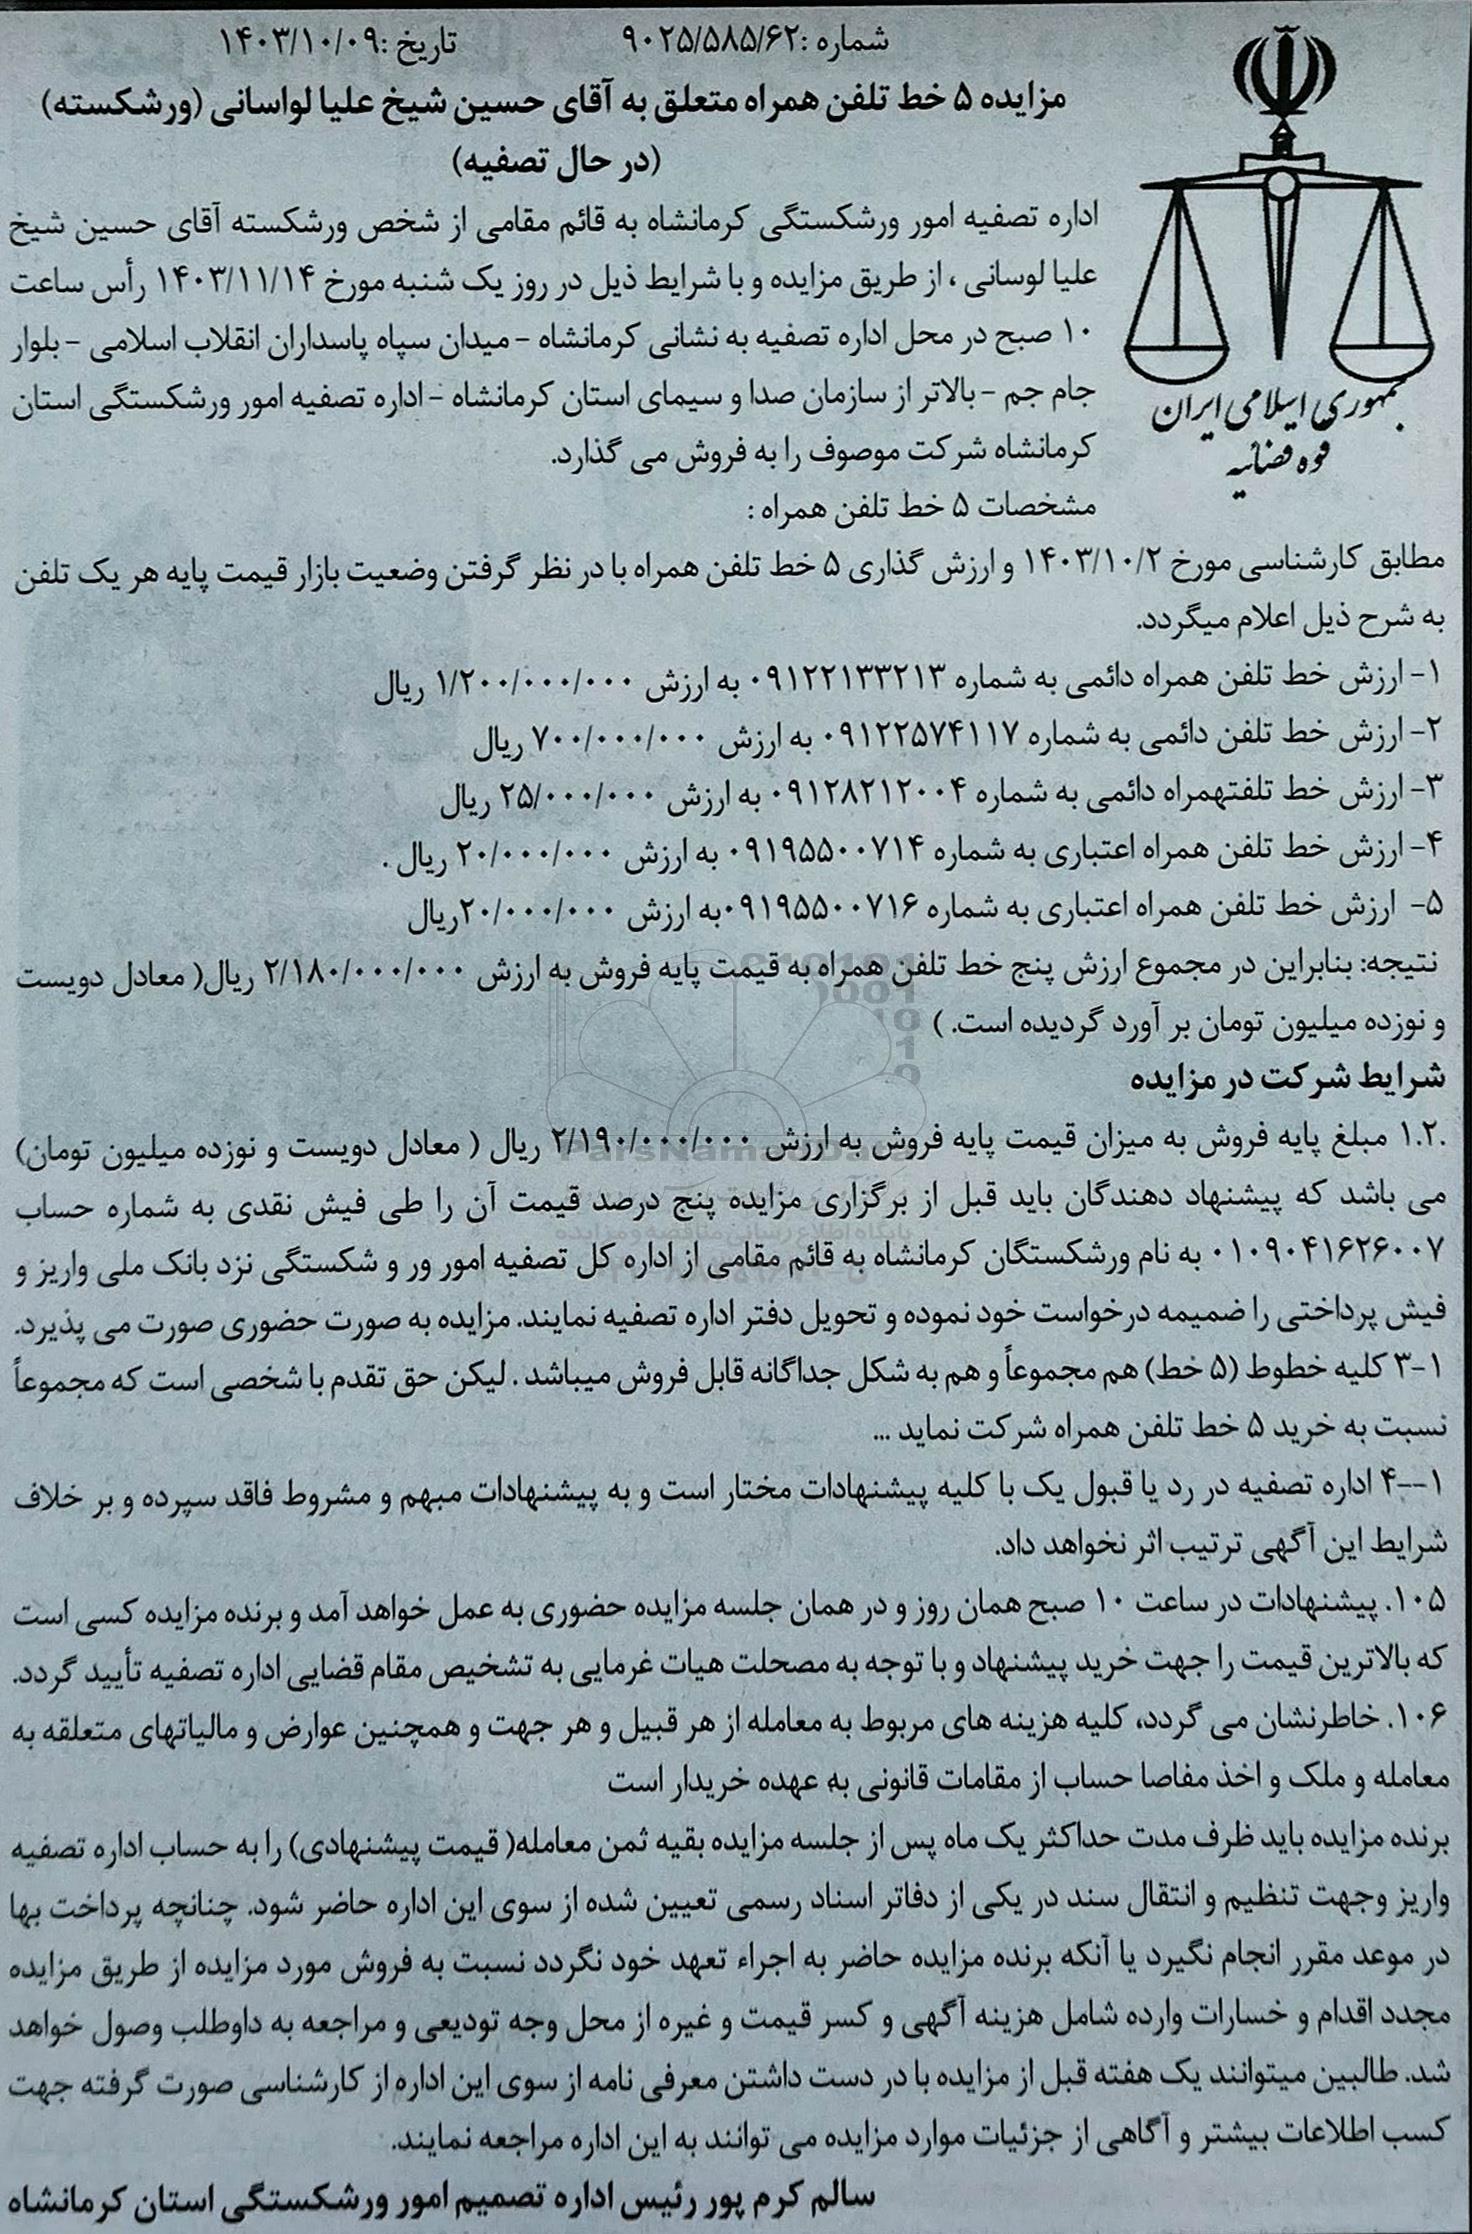 شماره :۹۰۲۵/۵۸۵/۶۲ تاریخ :۱۴۰۳/۱۰/۰۹
مزایده ۵ خط تلفن همراه متعلق به آقای حسین شیخ علیا لواسانی (ورشکسته)
(در حال تصفیه)
جمهوری اسلامی ایران
قوه قضائیه
اداره تصفیه امور ورشکستگی کرمانشاه به قائم مقامی از شخص ورشکسته آقای حسین شیخ
علیا لوسانی ، از طریق مزایده و با شرایط ذیل در روز یک شنبه مورخ ۱۴۰۳/۱۱/۱۴ رأس ساعت
۱۰ صبح در محل اداره تصفیه به نشانی کرمانشاه - میدان سپاه پاسداران انقلاب اسلامی - بلوار
جام جم - بالاتر از سازمان صدا و سیمای استان کرمانشاه - اداره تصفیه امور ورشکستگی استان
کرمانشاه شرکت موصوف را به فروش می گذارد.
مشخصات ۵ خط تلفن همراه :
مطابق کارشناسی مورخ ۱۴۰۳/۱۰/۲ و ارزش گذاری ۵ خط تلفن همراه با در نظر گرفتن وضعیت بازار قیمت پایه هر یک تلفن
به شرح ذیل اعلام میگردد.
۱- ارزش خط تلفن همراه دائمی به شماره ۰۹۱۲۲۱۳۳۲۱۳ به ارزش ۱/۲۰۰/۰۰۰/۰۰۰ ریال
۲- ارزش خط تلفن دائمی به شماره ۰۹۱۲۲۵۷۴۱۱۷ به ارزش ۷۰۰/۰۰۰/۰۰۰ ریال
۳- ارزش خط تلفتهمراه دائمی به شماره ۰۹۱۲۸۲۱۲۰۰۴ به ارزش ۲۵/۰۰۰/۰۰۰ ریال
۴- ارزش خط تلفن همراه اعتباری به شماره ۰۹۱۹۵۵۰۰۷۱۴ به ارزش ۲۰/۰۰۰/۰۰۰ ریال .
۵- ارزش خط تلفن همراه اعتباری به شماره ۰۹۱۹۵۵۰۰۷۱۶به ارزش ۲۰/۰۰۰/۰۰۰ریال
نتیجه: بنابراین در مجموع ارزش پنج خط تلفن همراه به قیمت پایه فروش به ارزش ۲/۱۸۰/۰۰۰/۰۰۰ ریال( معادل دویست
و نوزده میلیون تومان بر آورد گردیده است. )
شرایط شرکت در مزایده
۱.۲. مبلغ پایه فروش به میزان قیمت پایه فروش به ارزش ۲/۱۹۰/۰۰۰/۰۰۰ ریال ( معادل دویست و نوزده میلیون تومان)
می باشد که پیشنهاد دهندگان باید قبل از برگزاری مزایده پنج درصد قیمت آن را طی فیش نقدی به شماره حساب
۰۱۰۹۰۴۱۶۲۶۰۰۷ به نام ورشکستگان کرمانشاه به قائم مقامی از اداره کل تصفیه امور ور و شکستگی نزد بانک ملی واریز و
فیش پرداختی را ضمیمه درخواست خود نموده و تحویل دفتر اداره تصفیه نمایند. مزایده به صورت حضوری صورت می پذیرد.
۳-۱ کلیه خطوط (۵ خط) هم مجموعاً و هم به شکل جداگانه قابل فروش میباشد . لیکن حق تقدم با شخصی است که مجموعاً
نسبت به خرید ۵ خط تلفن همراه شرکت نماید ...
۴--۱ اداره تصفیه در رد یا قبول یک با کلیه پیشنهادات مختار است و به پیشنهادات مبهم و مشروط فاقد سپرده و بر خلاف
شرایط این آگهی ترتیب اثر نخواهد داد.
۱۰۵. پیشنهادات در ساعت ۱۰ صبح همان روز و در همان جلسه مزایده حضوری به عمل خواهد آمد و برنده مزایده کسی است
که بالاترین قیمت را جهت خرید پیشنهاد و با توجه به مصحلت هیات غرمایی به تشخیص مقام قضایی اداره تصفیه تأیید گردد.
۱۰۶. خاطرنشان می گردد، کلیه هزینه های مربوط به معامله از هر قبیل و هر جهت و همچنین عوارض و مالیاتهای متعلقه به
معامله و ملک و اخذ مفاصا حساب از مقامات قانونی به عهده خریدار است
برنده مزایده باید ظرف مدت حداکثر یک ماه پس از جلسه مزایده بقیه ثمن معامله( قیمت پیشنهادی) را به حساب اداره تصفیه
واریز وجهت تنظیم و انتقال سند در یکی از دفاتر اسناد رسمی تعیین شده از سوی این اداره حاضر شود. چنانچه پرداخت بها
در موعد مقرر انجام نگیرد یا آنکه برنده مزایده حاضر به اجراء تعهد خود نگردد نسبت به فروش مورد مزایده از طریق مزایده
مجدد اقدام و خسارات وارده شامل هزینه آگهی و کسر قیمت و غیره از محل وجه تودیعی و مراجعه به داوطلب وصول خواهد
شد. طالبین میتوانند یک هفته قبل از مزایده با در دست داشتن معرفی نامه از سوی این اداره از کارشناسی صورت گرفته جهت
کسب اطلاعات بیشتر و آگاهی از جزئیات موارد مزایده می توانند به این اداره مراجعه نمایند.
سالم کرم پور رئیس اداره تصمیم امور ورشکستگی استان کرمانشاه